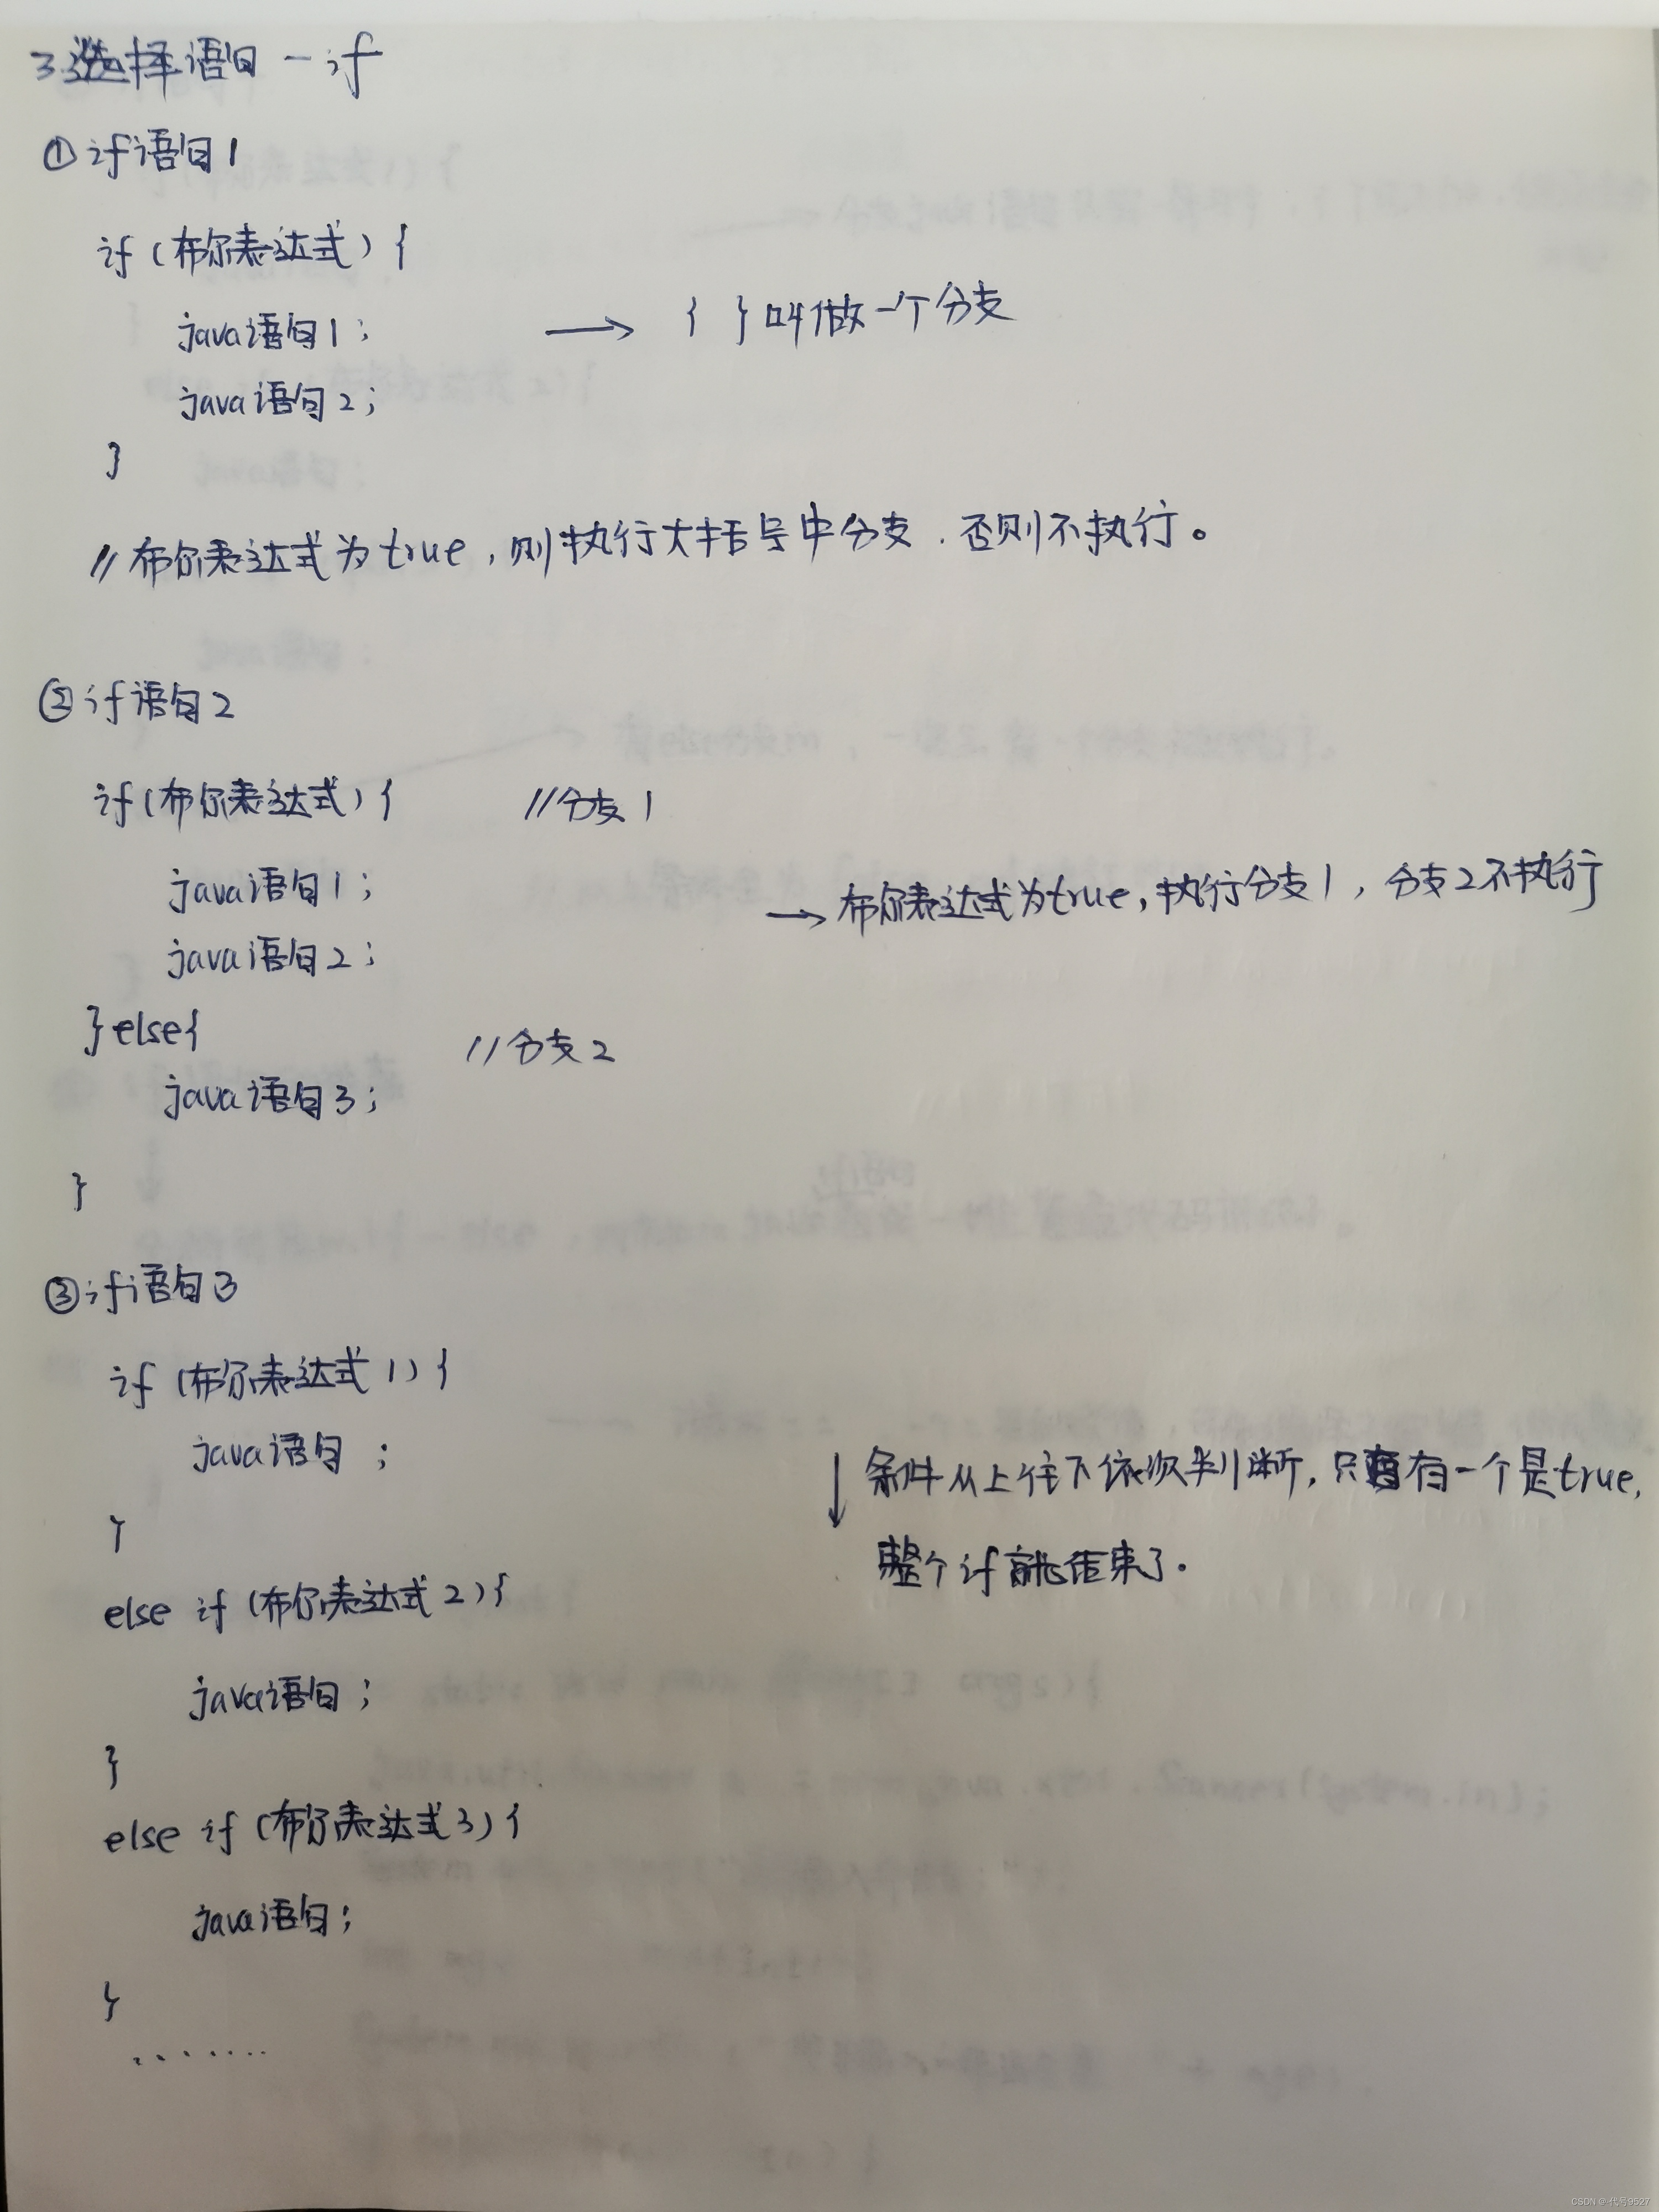 3.选择语句 - if
① if语句1
if (布尔表达式) {
java语句1;
→ { } 叫做一个分支
java语句2;
}
// 布尔表达式为true,则执行大括号中分支.否则不执行。
② if语句2
if(布尔表达式) { //分支1
java语句1;
→ 布尔表达式为true,执行分支1,分支2不执行
java语句2;
} else{ //分支2
java语句3;
}
③ if语句3
if (布尔表达式1) {
java语句 ;
↓ 条件从上往下依次判断,只有一个是true,
}
整个if就结束了.
else if (布尔表达式2){
java语句;
}
else if (布尔表达式3) {
java语句;
}
.......
CSDN @代号9527